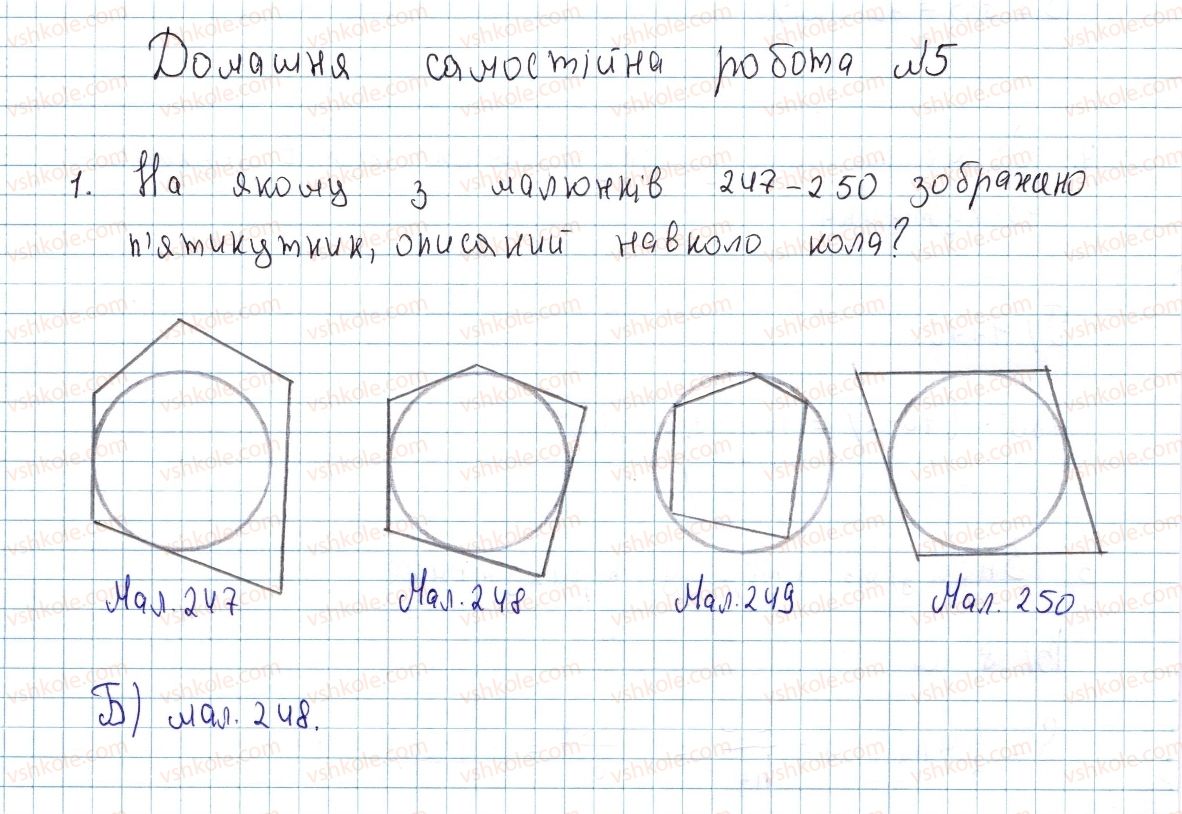 Домашня самостійна робота №5
1. На якому з малюнків 247-250 зображено
п'ятикутник, описаний навколо кола?
Мал. 247 Мал. 248 Мал. 249 Мал. 250
Б) мал. 248.